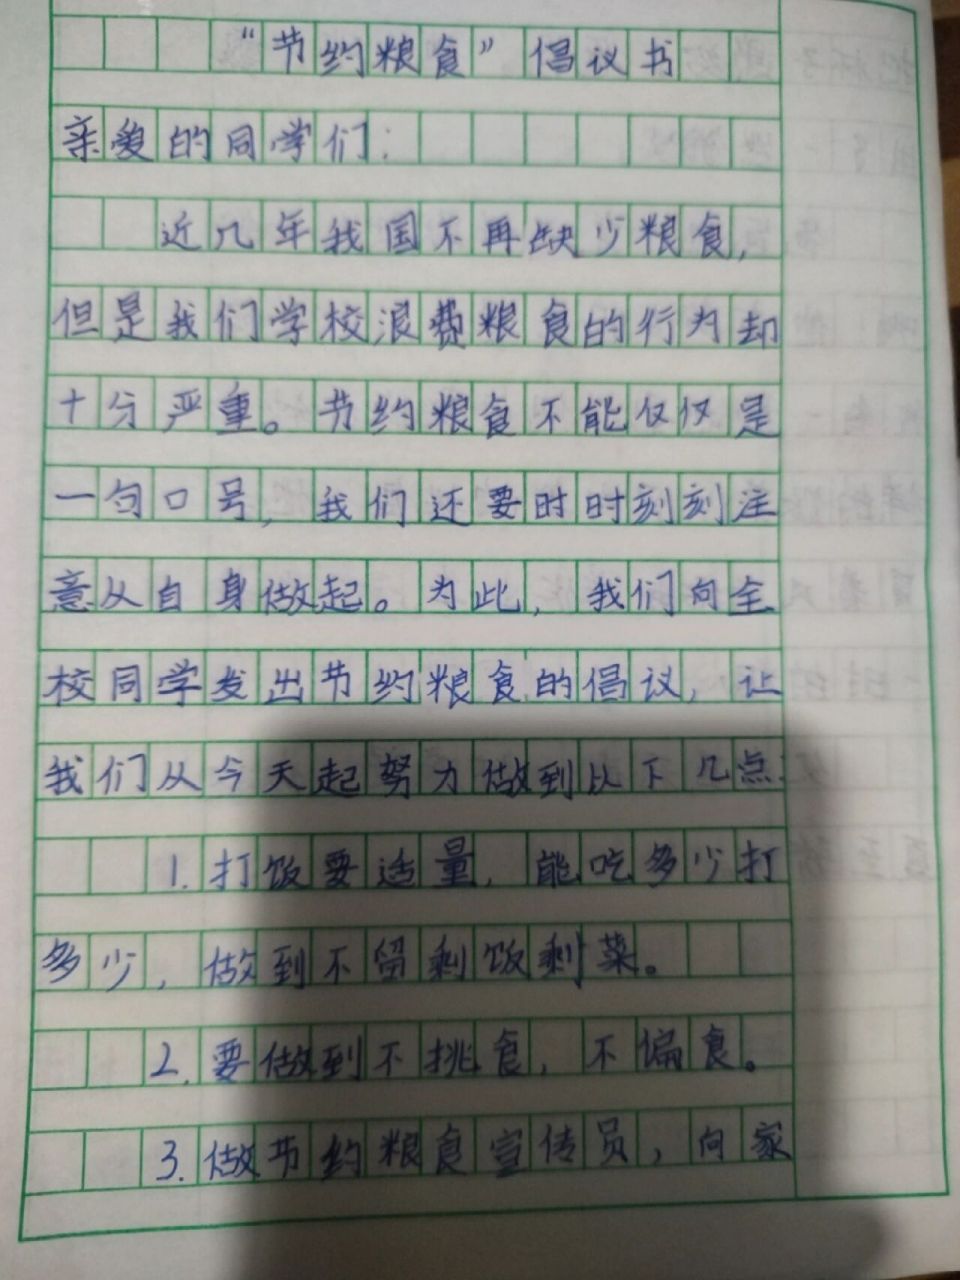 “节约粮食”倡议书
亲爱的同学们:
近几年我国不再缺少粮食,
但是我们学校浪费粮食的行为却
十分严重。节约粮食不能仅仅是
一句口号,我们还要时时刻刻注
意从自身做起。为此,我们向全
校同学发出节约粮食的倡议,让
我们从今天起努力做到以下几点:
1.打饭要适量,能吃多少打
多少,做到不留剩饭剩菜。
2.要做到不挑食,不偏食。
3.做节约粮食宣传员,向家